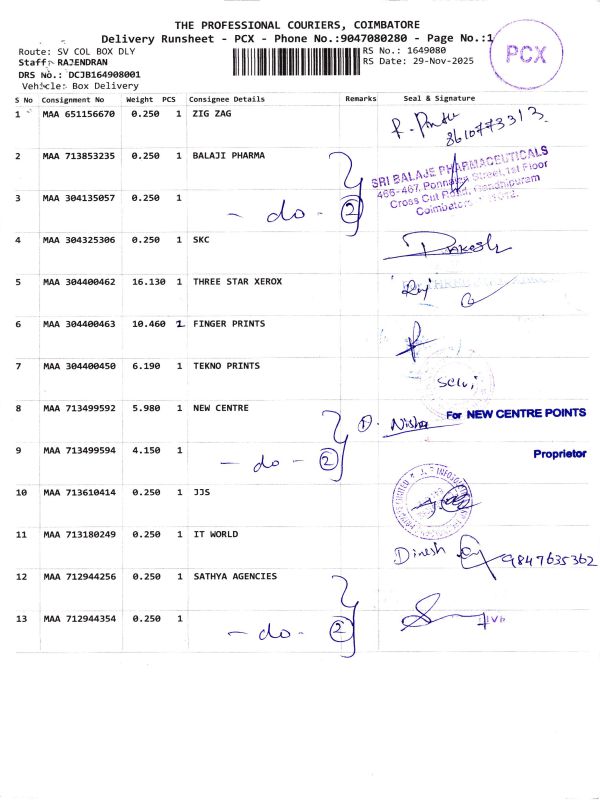 THE PROFESSIONAL COURIERS, COIMBATORE
Delivery Runsheet - PCX - Phone No.:9047080280 - Page No.:1
PCX
Route: SV COL BOX DLY
RS No.: 1649080
Staff: RAJENDRAN
RS Date: 29-Nov-2025
DRS No.: DCJB164908001
Vehicle: Box Delivery
S No Consignment No Weight PCS Consignee Details Remarks Seal & Signature
1 MAA 651156670 0.250 1 ZIG ZAG
8610773313
2 MAA 713853235 0.250 1 BALAJI PHARMA
SRI BALAJE PHARMACEUTICALS
466-467, Ponnaiya Street, 1st Floor
Cross Cut Road, Gandhipuram
Coimbatore
3 MAA 304135057 0.250 1
- do - 2
4 MAA 304325306 0.250 1 SKC
5 MAA 304400462 16.130 1 THREE STAR XEROX
6 MAA 304400463 10.460 1 FINGER PRINTS
7 MAA 304400450 6.190 1 TEKNO PRINTS
Selvi
8 MAA 713499592 5.980 1 NEW CENTRE
Nisha
For NEW CENTRE POINTS
9 MAA 713499594 4.150 1
- do - 2
Proprietor
10 MAA 713610414 0.250 1 JJS
11 MAA 713180249 0.250 1 IT WORLD
Dinesh 9847635362
12 MAA 712944256 0.250 1 SATHYA AGENCIES
13 MAA 712944354 0.250 1
- do - 2